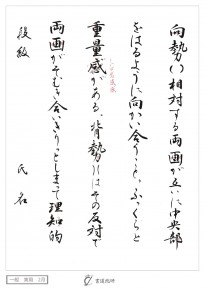 向勢()相対する両画が互いに中央部
をはるように向かい合うこと。ふっくらと
重量感がある。背勢)(はその反対で
両画がそむき合いきりっとしまって理知的
段級 氏名
一般 実用 2月